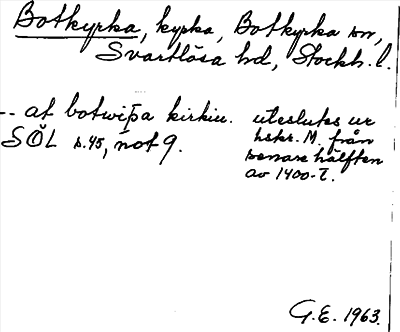 Botkyrka, kyrka, Botkyrka sn,
Svartlösa hd, Stockh. l.
-- at botwiþa kirkiu. uteslutes ur
SÖL s.45, not 9. hskr. M. från
senare hälften
av 1400-t.
G.E. 1963.